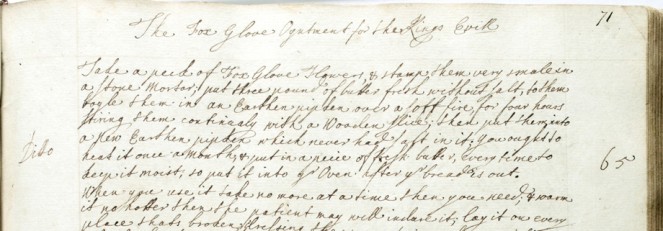 71
The Fox Glove Oyntment for the Kings Evill
Take a peck of Fox Glove Flowers, & stamp them very smale in
a stone Mortor, put three pound of butter fresh without salt, to them
boyle them in an Earthen pipken over a soft fire, for four hours
stiring them continualy with a Wooden slice; then put them into
a New Earthen pipken which never had salt in it; You ought to
Ditto
heat it once a Month, & put in a peice of fresh butter, Every time to
65
keep it moist; so put it into ye Oven after ye bread is out.
When you use it take no more at a time then you need, & warm
it no hotter then the patient may well indure it; lay it on every
place thats broken